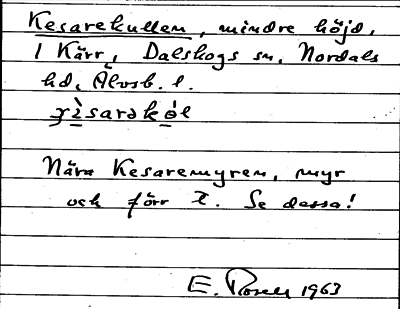 Kesarekullen, mindre höjd,
i Kärr, Dalskogs sn, Nordals
hd, Älvsb. l.
Nära Kesaremyren, myr
och förr t. Se dessa!
E. 1963